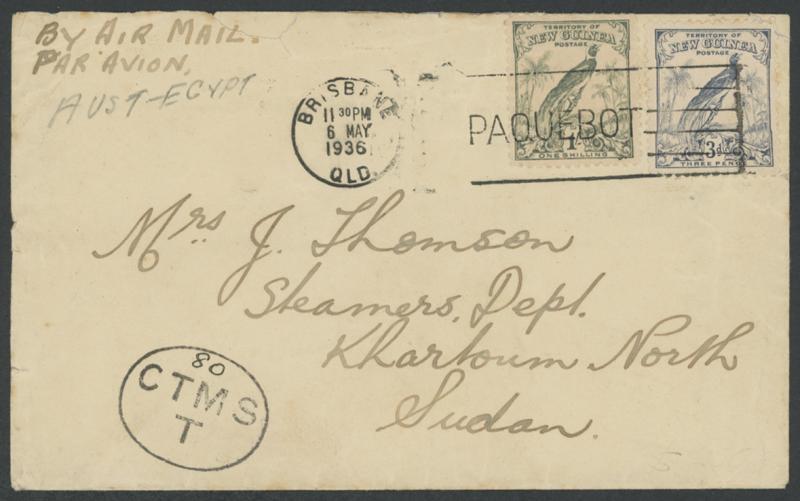 BY AIR MAIL.
PAR AVION.
AUST-EGYPT
BRISBANE
11 30 PM
6 MAY
1936
QLD
PAQUEBOT
TERRITORY OF
NEW GUINEA
POSTAGE
1/-
ONE SHILLING
TERRITORY OF
NEW GUINEA
POSTAGE
3d
THREE PENCE
Mrs J. Thomson
Steamers, Dept.
Khartoum North
Sudan.
80
CTMS
T